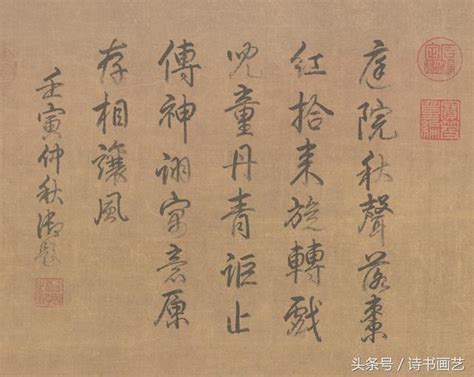 庭院秋聲落棗
紅拾來旋轉戲
兒童丹青詎止
傳神詡寓意原
存相讓風
壬寅仲秋御題
头条号／诗书画艺